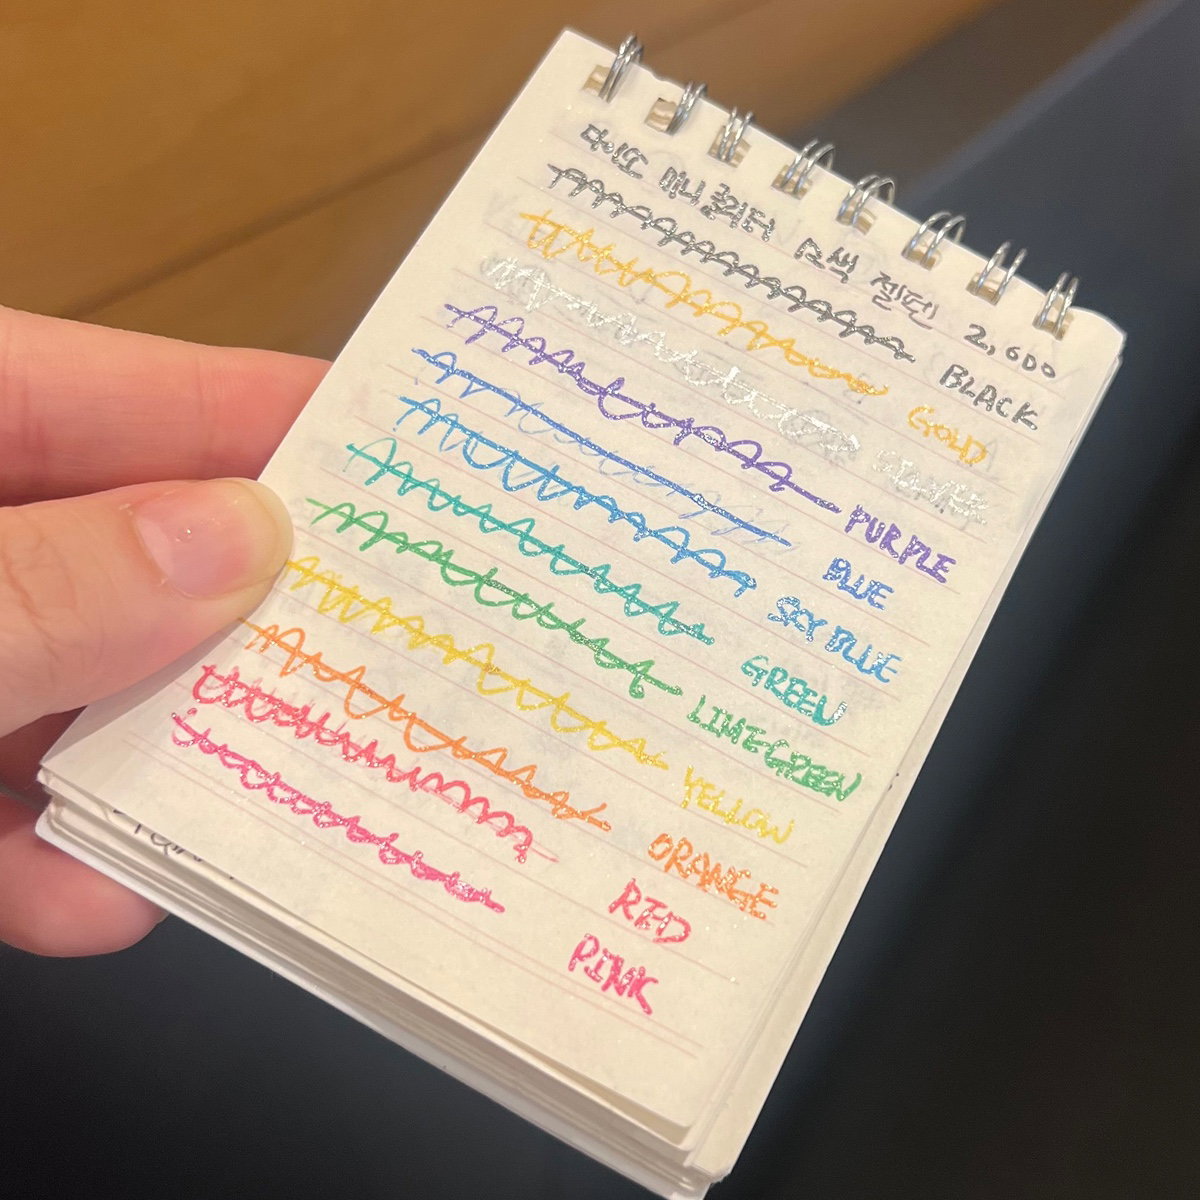 다이소 미니 글리터 12색 젤펜 2,600
BLACK
GOLD
SILVER
PURPLE
BLUE
SKY BLUE
GREEN
LIME GREEN
YELLOW
ORANGE
RED
PINK